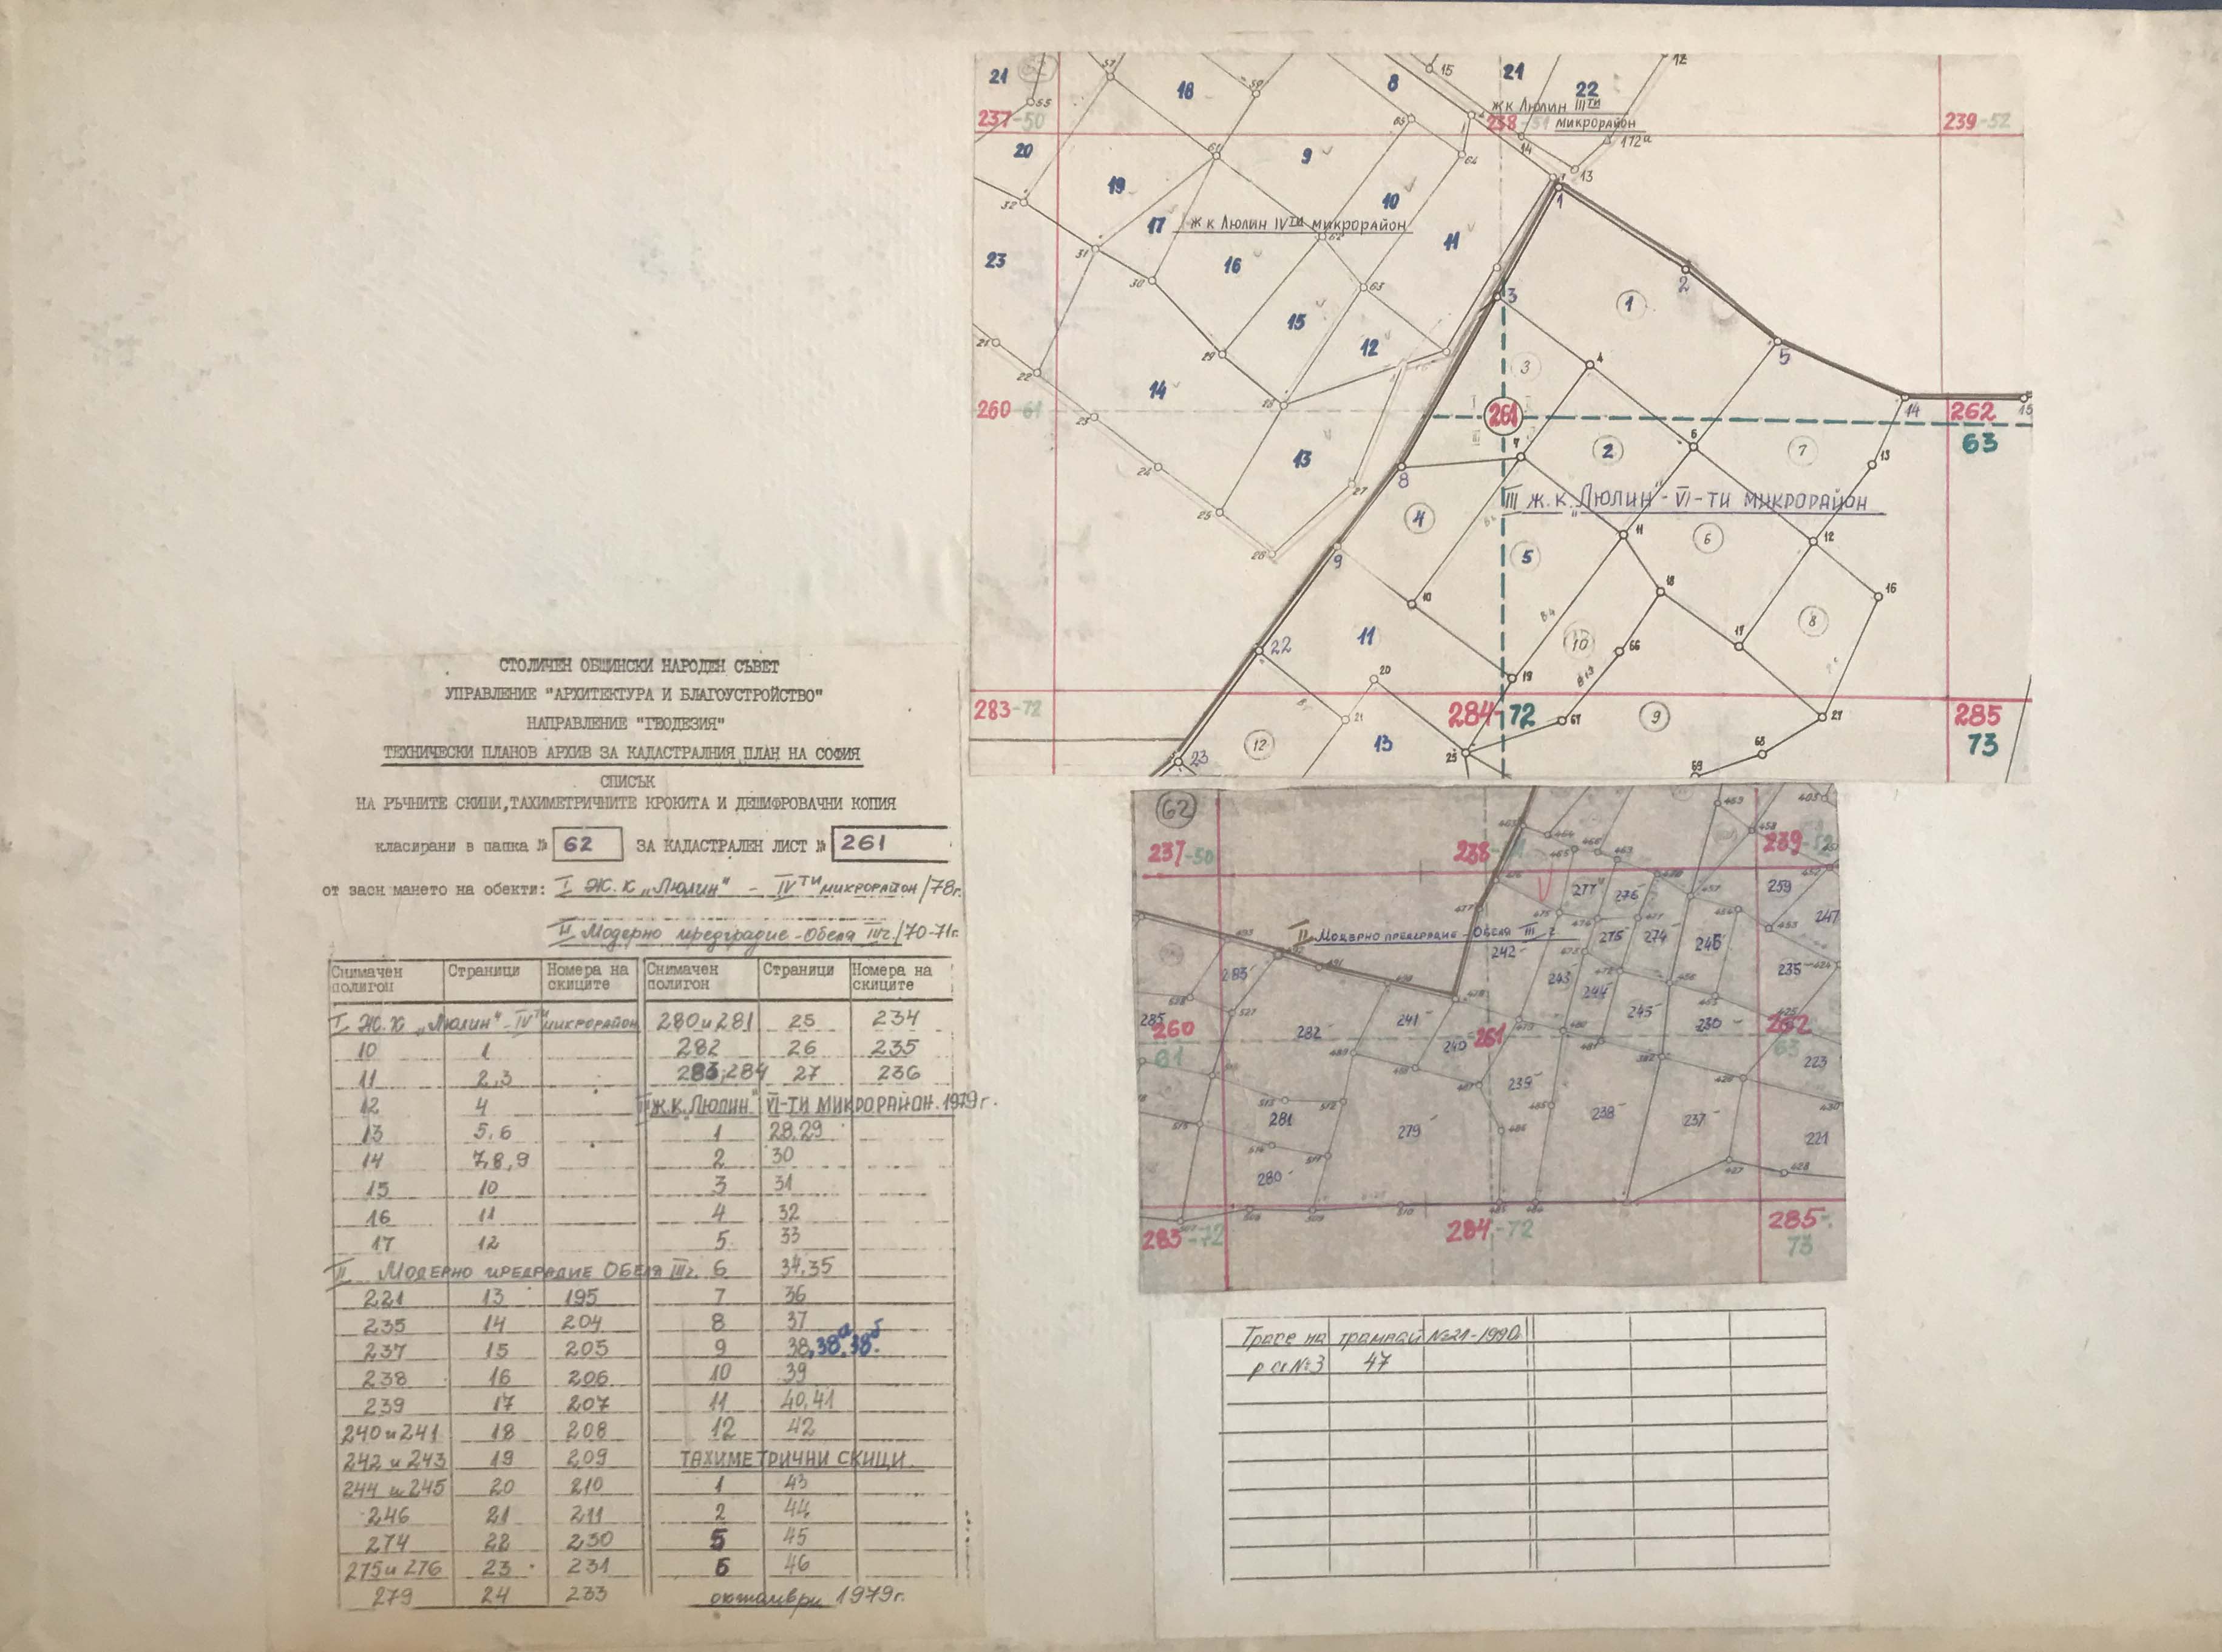 СТОЛИЧЕН ОБЩИНСКИ НАРОДЕН СЪВЕТ
УПРАВЛЕНИЕ "АРХИТЕКТУРА И БЛАГОУСТРОЙСТВО"
НАПРАВЛЕНИЕ "ГЕОДЕЗИЯ"
ТЕХНИЧЕСКИ ПЛАНОВ АРХИВ ЗА КАДАСТРАЛНИЯ ПЛАН НА СОФИЯ
СПИСЪК
НА РЪЧНИТЕ СКИЦИ, ТАХИМЕТРИЧНИТЕ КРОКИТА И ДЕШИФРОВАЧНИ КОПИЯ
класирани в папка № 62 ЗА КАДАСТРАЛЕН ЛИСТ № 261
от засн мането на обекти: I Ж.К „Люлин" - IV ТИ микрорайон /78г.
II Модерно предградие - Обеля III г. /70-71г.
Снимачен полигон Страници Номера на скиците Снимачен полигон Страници Номера на скиците
I. Ж.К „Люлин" - IV ТИ микрорайон 280 и 281 25 234
10 1 282 26 235
11 2,3 283,284 27 236
12 4 III Ж.К. „Люлин" VI-ТИ МИКРОРАЙОН. 1979 г.
13 5,6 1 28,29
14 7,8,9 2 30
15 10 3 31
16 11 4 32
17 12 5 33
II. МОДЕРНО ПРЕДГРАДИЕ ОБЕЛЯ III г. 6 34,35
221 13 195 7 36
235 14 204 8 37
237 15 205 9 38, 38а, 38б.
238 16 206 10 39
239 17 207 11 40,41
240 и 241 18 208 12 42
242 и 243 19 209 ТАХИМЕТРИЧНИ СКИЦИ
244 и 245 20 210 1 43
246 21 211 2 44
274 22 230 5 45
275 и 276 23 231 6 46
279 24 233 октомври 1979 г.
21 18 8 15 21 22 12
57 59 55
ЖК ЛЮЛИН III ТИ
МИКРОРАЙОН
237-50 238-51 239-52
20 61 9 65 64 14 172а
19 10 13
32 17 1
Ж К ЛЮЛИН IV ТИ МИКРОРАЙОН
31 62 11 2
23 16
30 63 3 1
21 15 5
29 12 4
22 14 3
260-61 261 14 262 15
23 63
24 13 8 7 2 6 7 13
27
III Ж.К. „ЛЮЛИН" - VI - ТИ МИКРОРАЙОН
25 4
26 9 5 11 6 12
10 18 16
22 11 10 66 17 8
20 19
283-72 21 284-72 67 9 27 285
23 12 13 25 68 73
69
62
237-50 238 239-52
463 464 469 458
277 276 259
II МОДЕРНО ПРЕДГРАДИЕ - ОБЕЛЯ III г.
242 275 274 246 247
283 243 244 235
285 282 241 245 230
260 240 261 262
61 63
239 223
281 279 238 237
221
280
283-72 284-72 285
73
Трасе на трамвай №21-1990
р ск №3 47